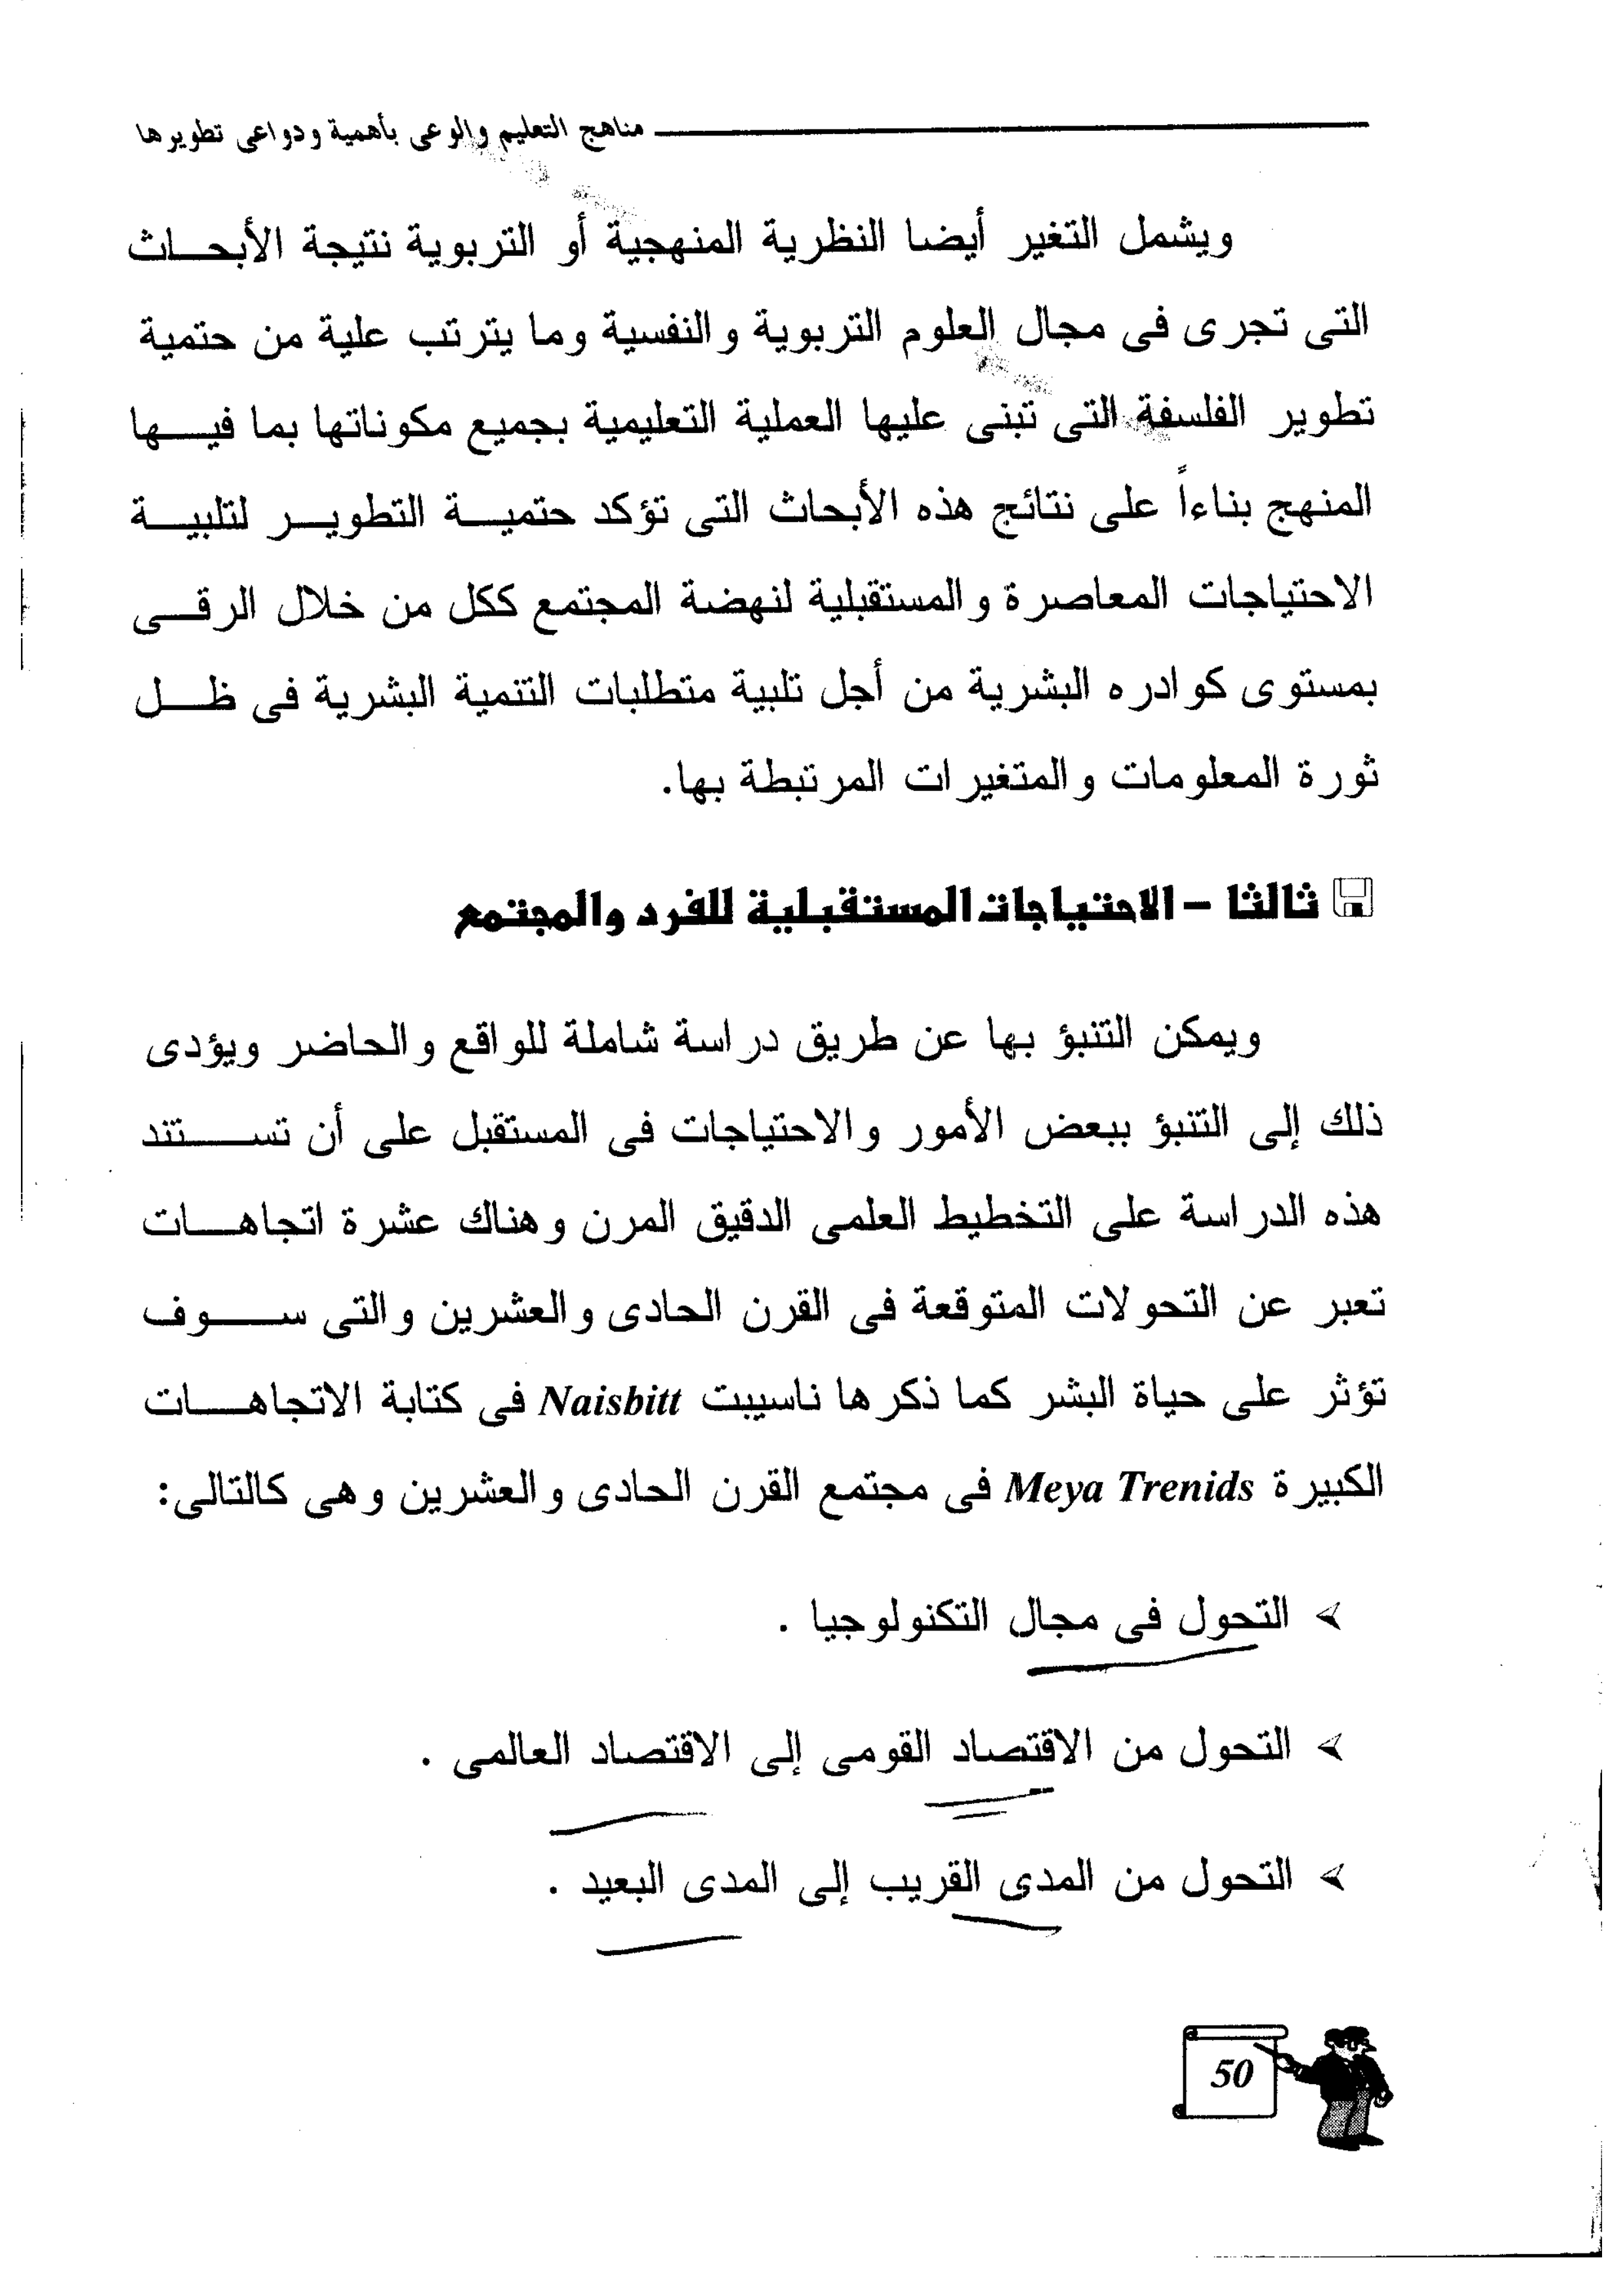 مناهج التعليم والوعى بأهمية ودواعى تطويرها
ويشمل التغير أيضا النظرية المنهجية أو التربوية نتيجة الأبحاث
التى تجرى فى مجال العلوم التربوية والنفسية وما يترتب علية من حتمية
تطوير الفلسفة التى تبنى عليها العملية التعليمية بجميع مكوناتها بما فيها
المنهج بناءاً على نتائج هذه الأبحاث التى تؤكد حتمية التطوير لتلبية
الاحتياجات المعاصرة والمستقبلية لنهضة المجتمع ككل من خلال الرقى
بمستوى كوادره البشرية من أجل تلبية متطلبات التنمية البشرية فى ظل
ثورة المعلومات والمتغيرات المرتبطة بها.
ثالثا – الاحتياجات المستقبلية للفرد والمجتمع
ويمكن التنبؤ بها عن طريق دراسة شاملة للواقع والحاضر ويؤدى
ذلك إلى التنبؤ ببعض الأمور والاحتياجات فى المستقبل على أن تستند
هذه الدراسة على التخطيط العلمى الدقيق المرن وهناك عشرة اتجاهات
تعبر عن التحولات المتوقعة فى القرن الحادى والعشرين والتى سوف
تؤثر على حياة البشر كما ذكرها ناسيبت Naisbitt فى كتابة الاتجاهات
الكبيرة Meya Trenids فى مجتمع القرن الحادى والعشرين وهى كالتالى:
➢ التحول فى مجال التكنولوجيا .
➢ التحول من الاقتصاد القومى إلى الاقتصاد العالمى .
➢ التحول من المدى القريب إلى المدى البعيد .
50